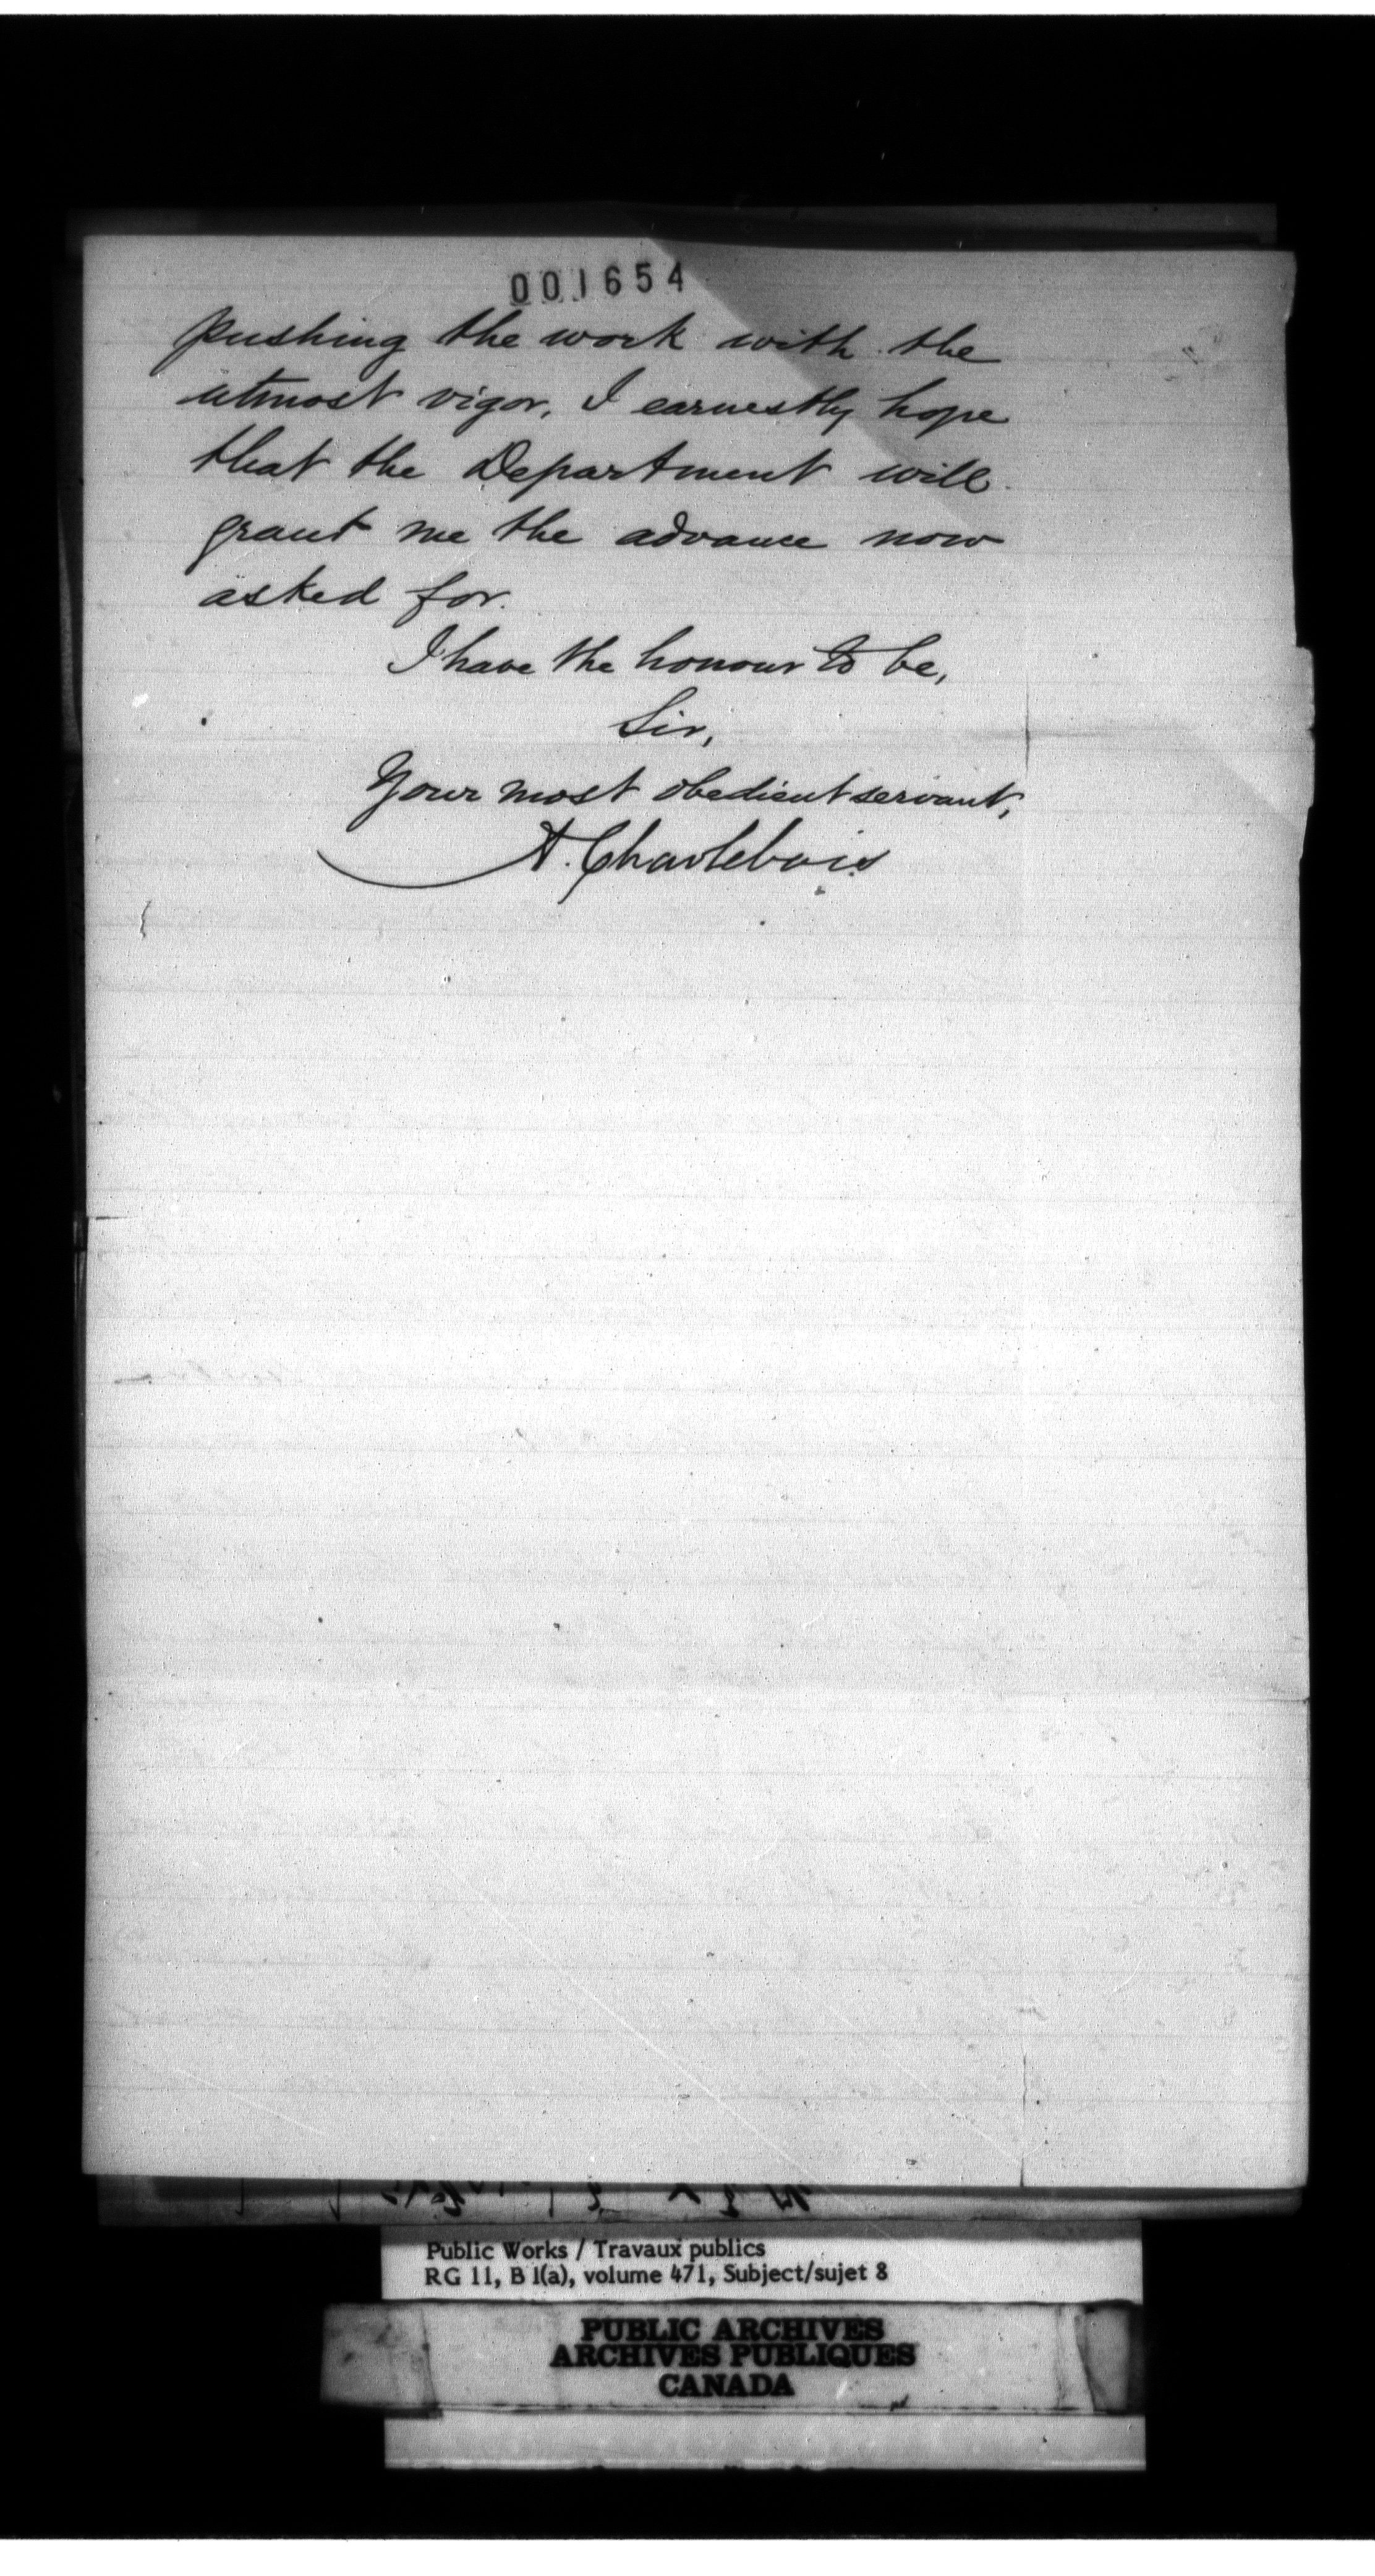 001654
pushing the work with the
utmost vigor, I earnestly hope
that the Department will
grant me the advance now
asked for.
I have the honour to be,
Sir,
Your most obedient servant,
A. Charlebois
Public Works / Travaux publics
RG 11, B 1(a), volume 471, Subject/sujet 8
PUBLIC ARCHIVES
ARCHIVES PUBLIQUES
CANADA